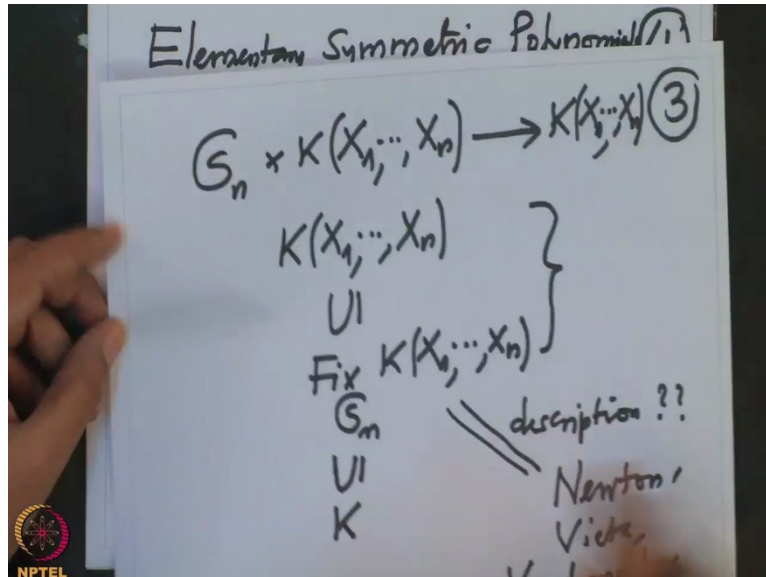 Elementary Symmetric Polynomial 1
𝔖ₙ × K(X₁,…,Xₙ) → K(X₁,…,Xₙ) 3
K(X₁,…,Xₙ)
UI
Fix K(X₁,…,Xₙ)
𝔖ₙ
UI
K
description ??
Newton,
Vieta,
NPTEL